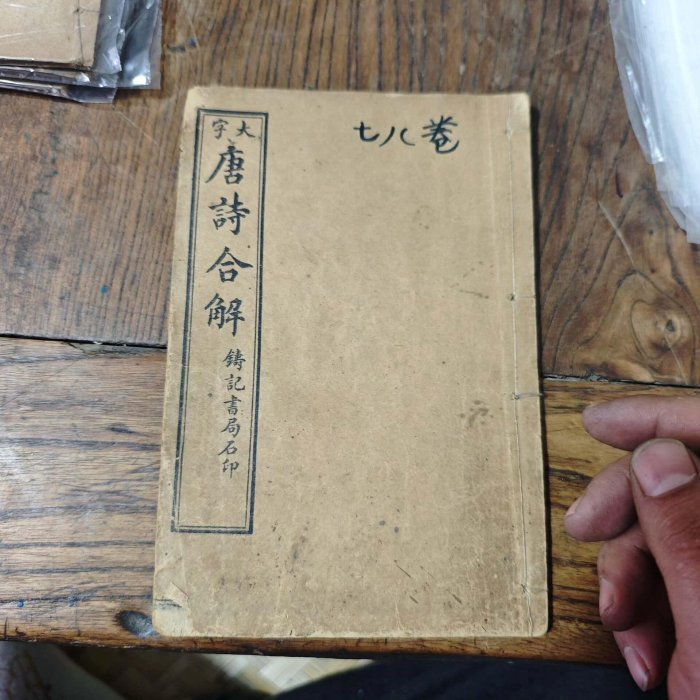 七八卷
大字
唐詩合解
鑄記書局石印